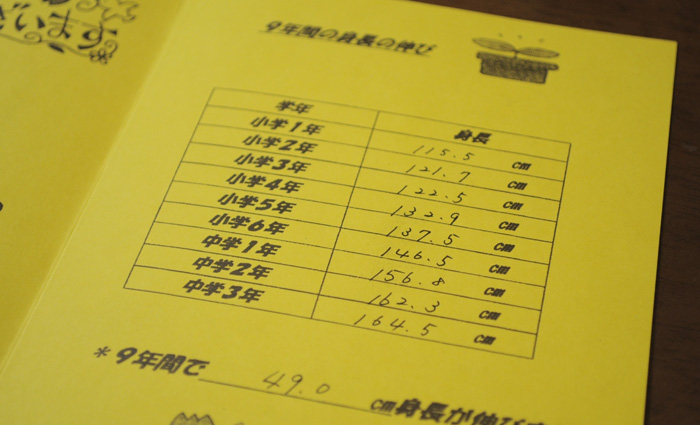 ざいます
9年間の身長の伸び
学年 身長
小学1年 115.5 cm
小学2年 121.7 cm
小学3年 122.5 cm
小学4年 132.9 cm
小学5年 137.5 cm
小学6年 146.5 cm
中学1年 156.8 cm
中学2年 162.3 cm
中学3年 164.5 cm
*9年間で 49.0 cm身長が伸び